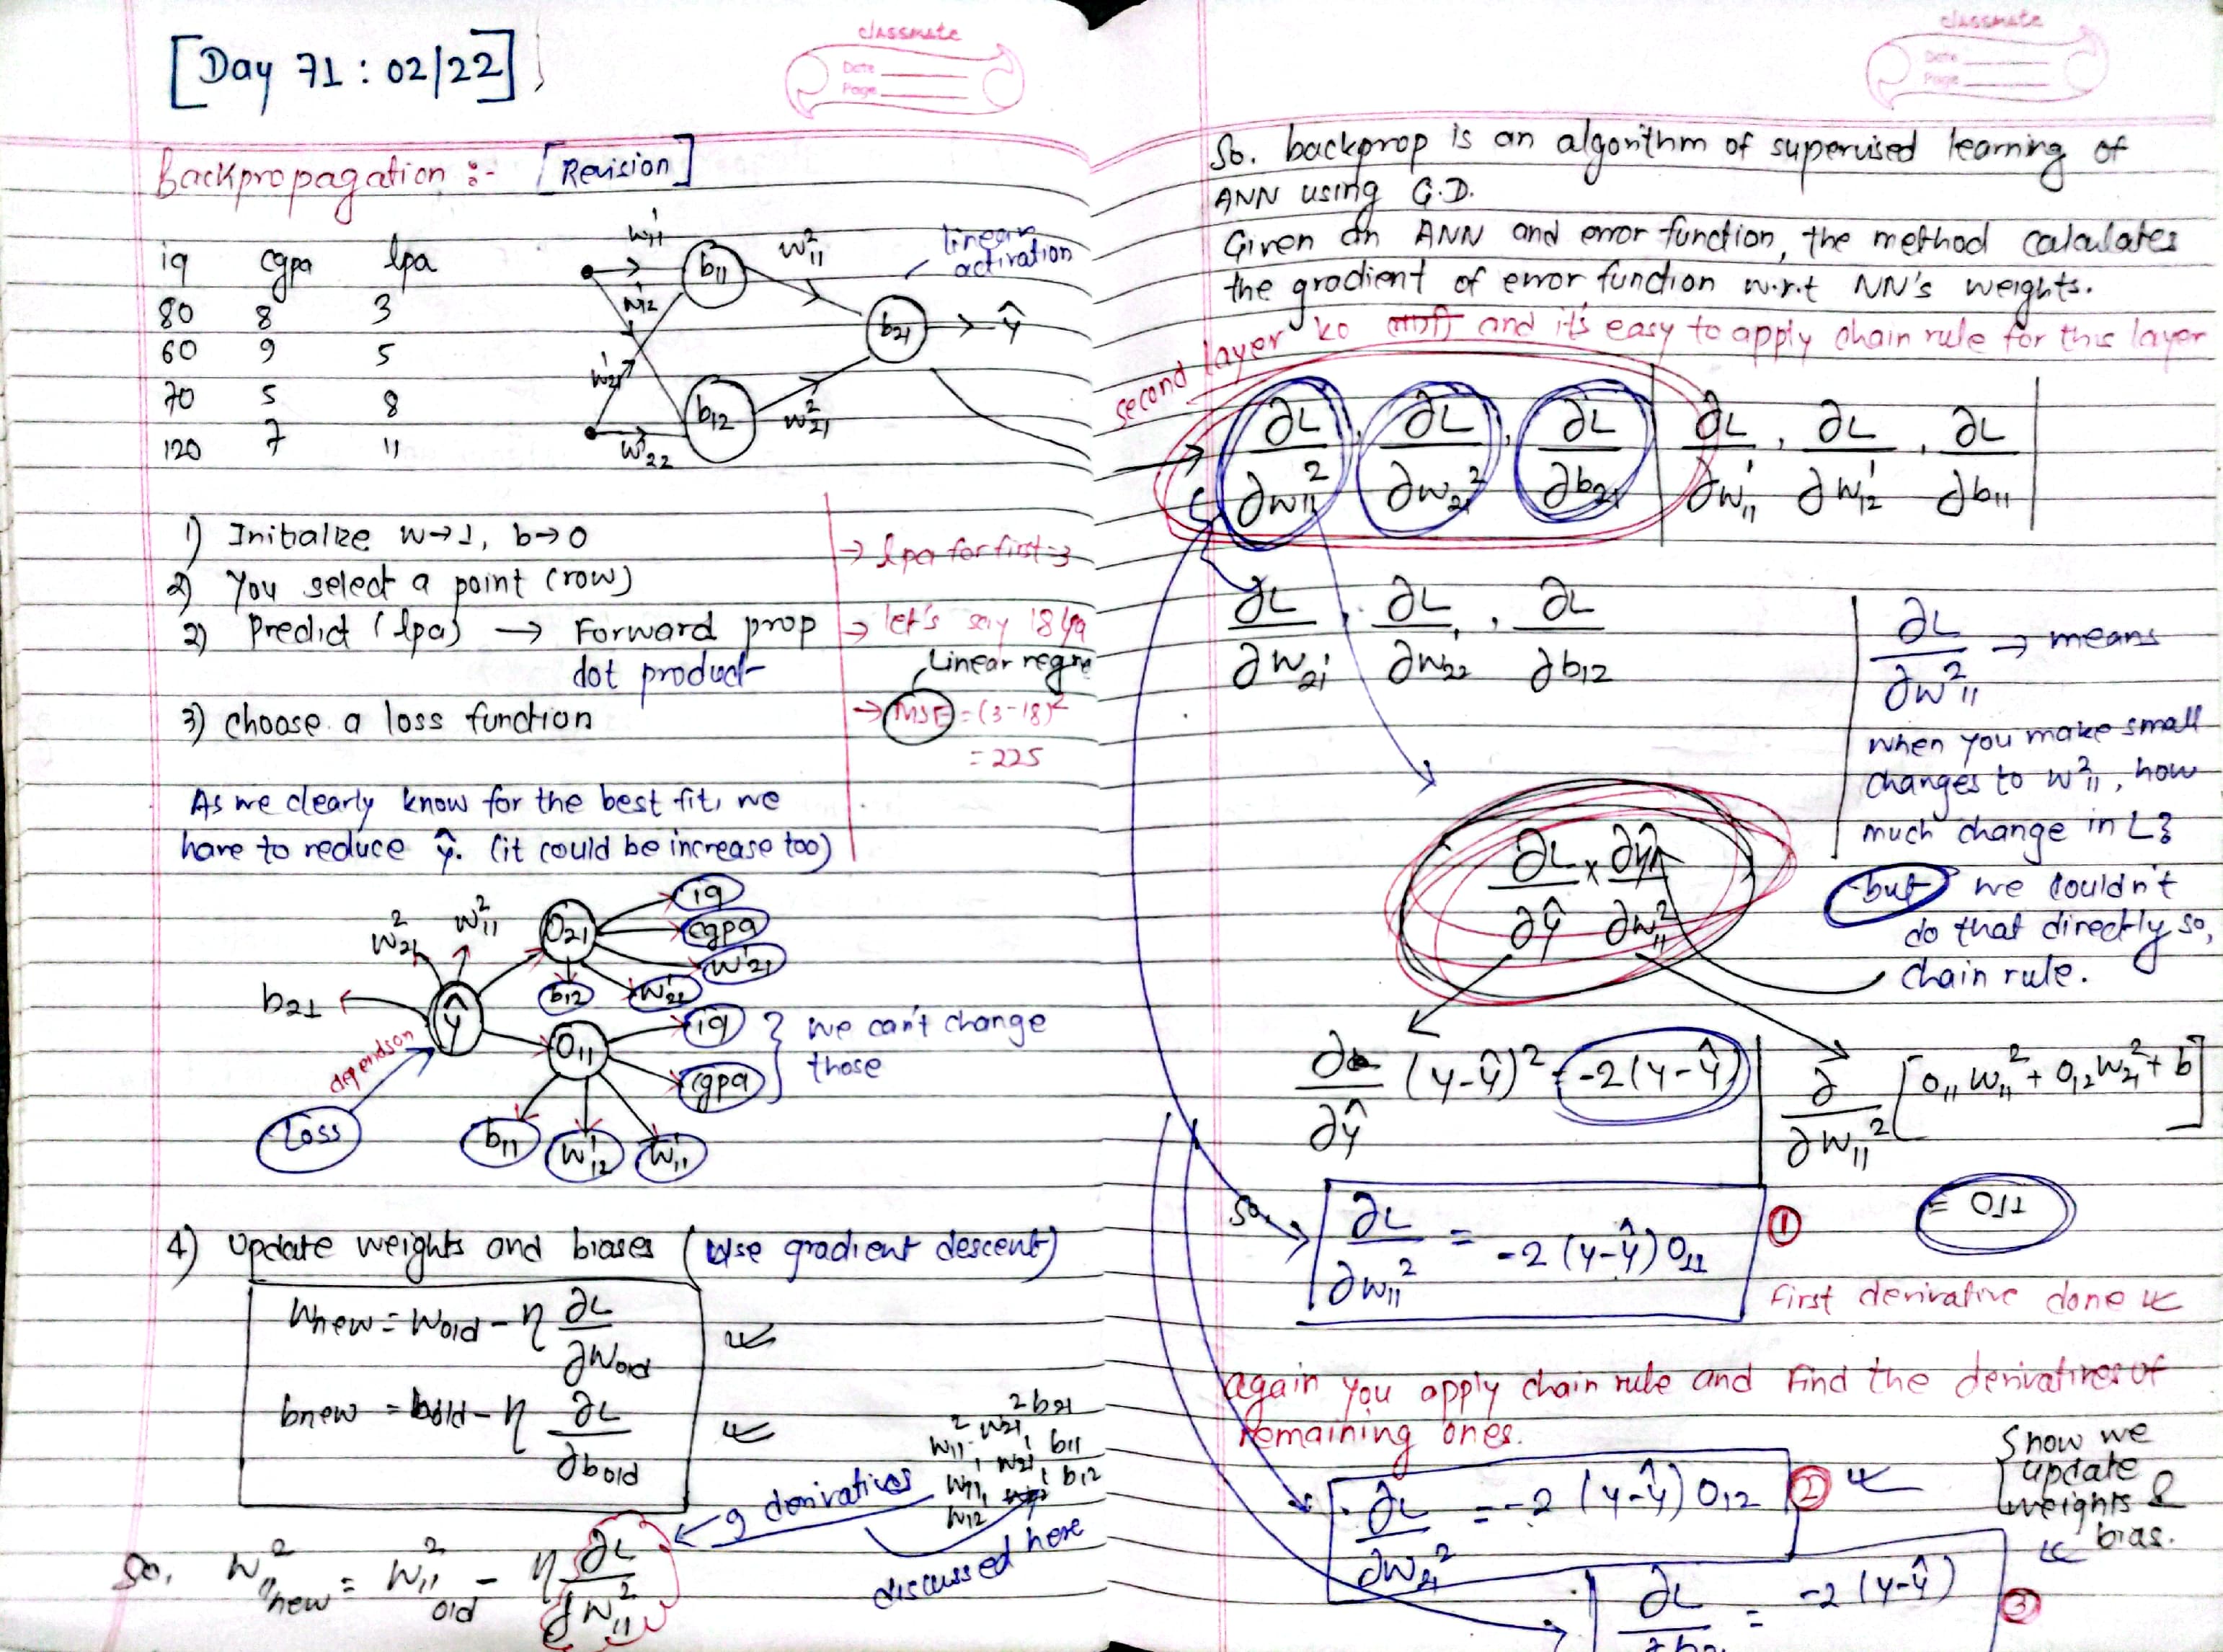 [Day 71 : 02/22]
classmate
Date
Page
Backpropagation :- [Revision]
iq cgpa lpa
80 8 3
60 9 5
70 5 8
120 7 11
w¹₁₁
w¹₁₂
w¹₂₁
w¹₂₂
b₁₁
b₁₂
w²₁₁
w²₂₁
b₂₁
ŷ
linear activation
1) Initialize w→1, b→0
2) You select a point (row)
2) Predict (lpa) → Forward prop
dot product
3) choose a loss function
→ lpa for first = 3
→ let's say 18 lpa
Linear regre
→ MSE = (3-18)²
= 225
As we clearly know for the best fit, we
have to reduce ŷ. (it could be increase too)
w²₂₁ w²₁₁ O₂₁ iq
cgpa
w¹₂₁
b₁₂ w¹₂₂
b₂₁ ŷ
O₁₁ iq
cgpa
} we can't change
those
depends on
Loss
b₁₁ w¹₁₂ w¹₁₁
4) Update weights and biases (Use gradient descent)
Wnew = Wold - η ∂L/∂Wold
bnew = bold - η ∂L/∂bold
9 derivatives
w²₁₁, w²₂₁, b₂₁
w¹₁₁, w¹₂₁, b₁₁
w¹₁₂ b₁₂
discussed here
So, w²₁₁ new = w²₁₁ old - η ∂L/∂w²₁₁
classmate
Date
Page
So. backprop is an algorithm of supervised learning of
ANN using G.D.
Given an ANN and error function, the method calculates
the gradient of error function w.r.t NN's weights.
second layer ko and it's easy to apply chain rule for this layer
∂L/∂w₁₁², ∂L/∂w₂₁², ∂L/∂b₂₁ | ∂L/∂w¹₁₁, ∂L/∂w¹₁₂, ∂L/∂b₁₁ |
∂L/∂w₂₁¹, ∂L/∂w₂₂¹, ∂L/∂b₁₂
∂L/∂w²₁₁ → means
when you make small
changes to w²₁₁, how
much change in L?
but we couldn't
do that directly so,
chain rule.
∂L/∂ŷ × ∂ŷ/∂w²₁₁
∂/∂ŷ (y-ŷ)² = -2(y-ŷ)
∂/∂w₁₁² [O₁₁ w₁₁² + O₁₂ w₂₁² + b]
= O₁₁
So, ∂L/∂w₁₁² = -2 (y-ŷ) O₁₁ ①
First derivative done
again you apply chain rule and find the derivatives of
remaining ones.
∂L/∂w₂₁² = -2 (y-ŷ) O₁₂ ②
now we
update
weights &
bias.
∂L/∂b₂₁ = -2 (y-ŷ) ③